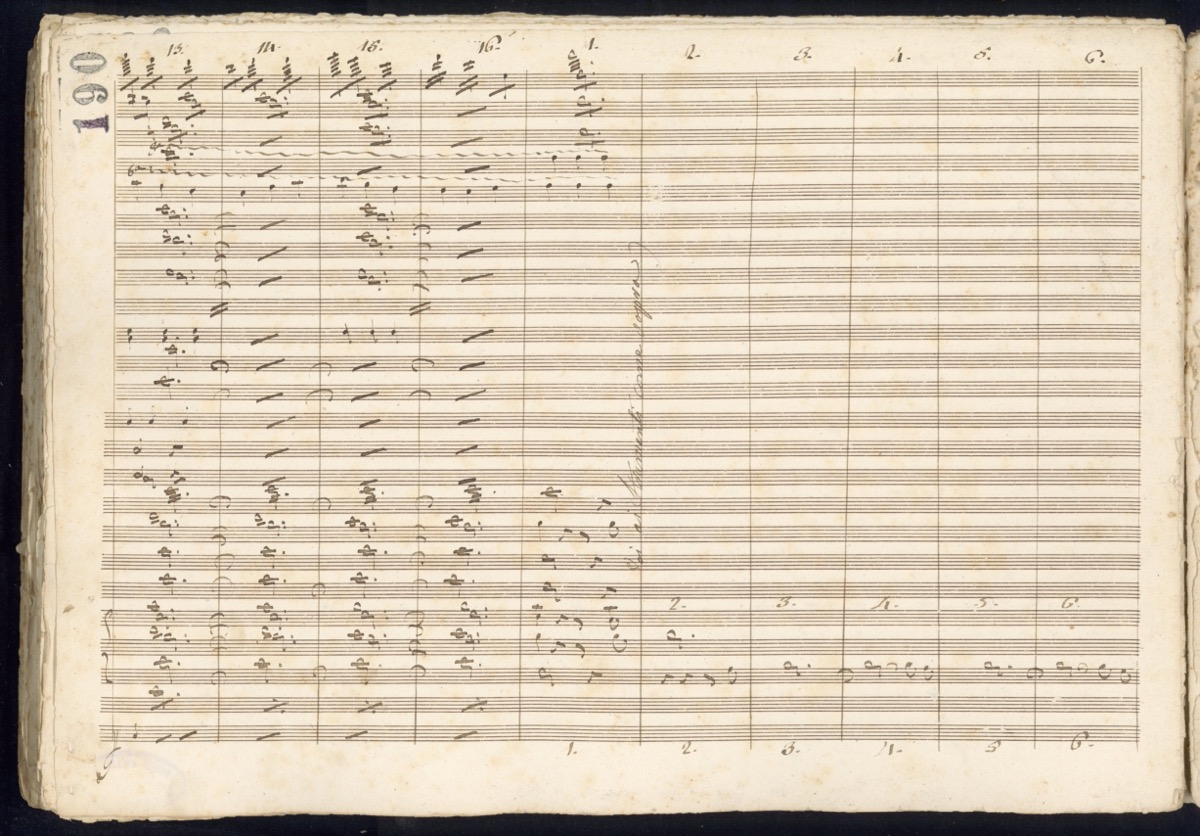 190
13. 14. 15. 16. 1. 2. 3. 4. 5. 6.
Strumenti come sopra
2. 3. 4. 5. 6.
1. 2. 3. 4. 5 6.